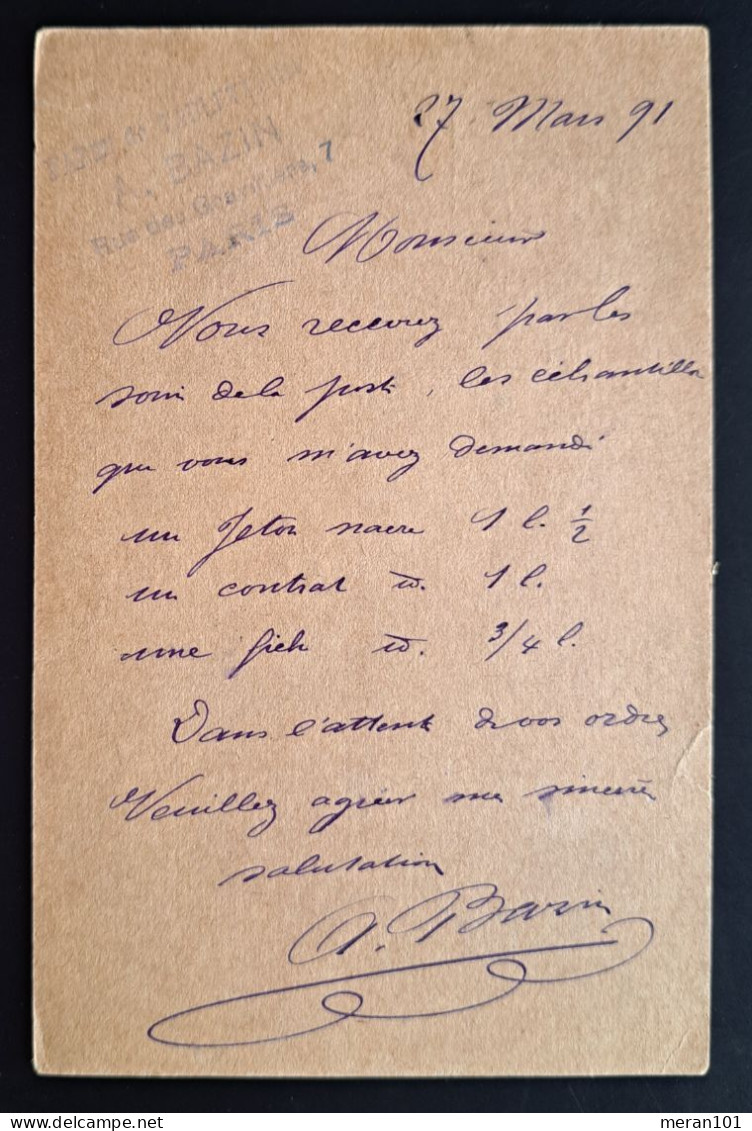 27 Mars 91
A. BAZIN
Rue des 7
PARIS
Monsieur
Vous recevrez par les
soin de la poste, les échantillon
que vous m'avez demandé
un Jeton nacre 1 l. 1/2
un contrat id. 1 l.
une fich id. 3/4 l.
Dans l'attente de vos ordres
Veuillez agréer mes sincères
salutation
A. Bazin
meran101